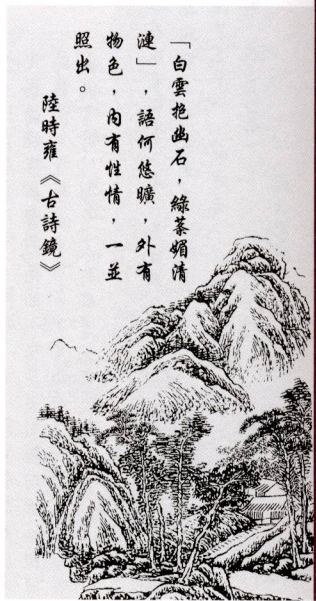 「白雲抱幽石，綠篆媚清
漣」，語何悠曠，外有
物色，內有性情，一並
照出。
陸時雍《古詩鏡》